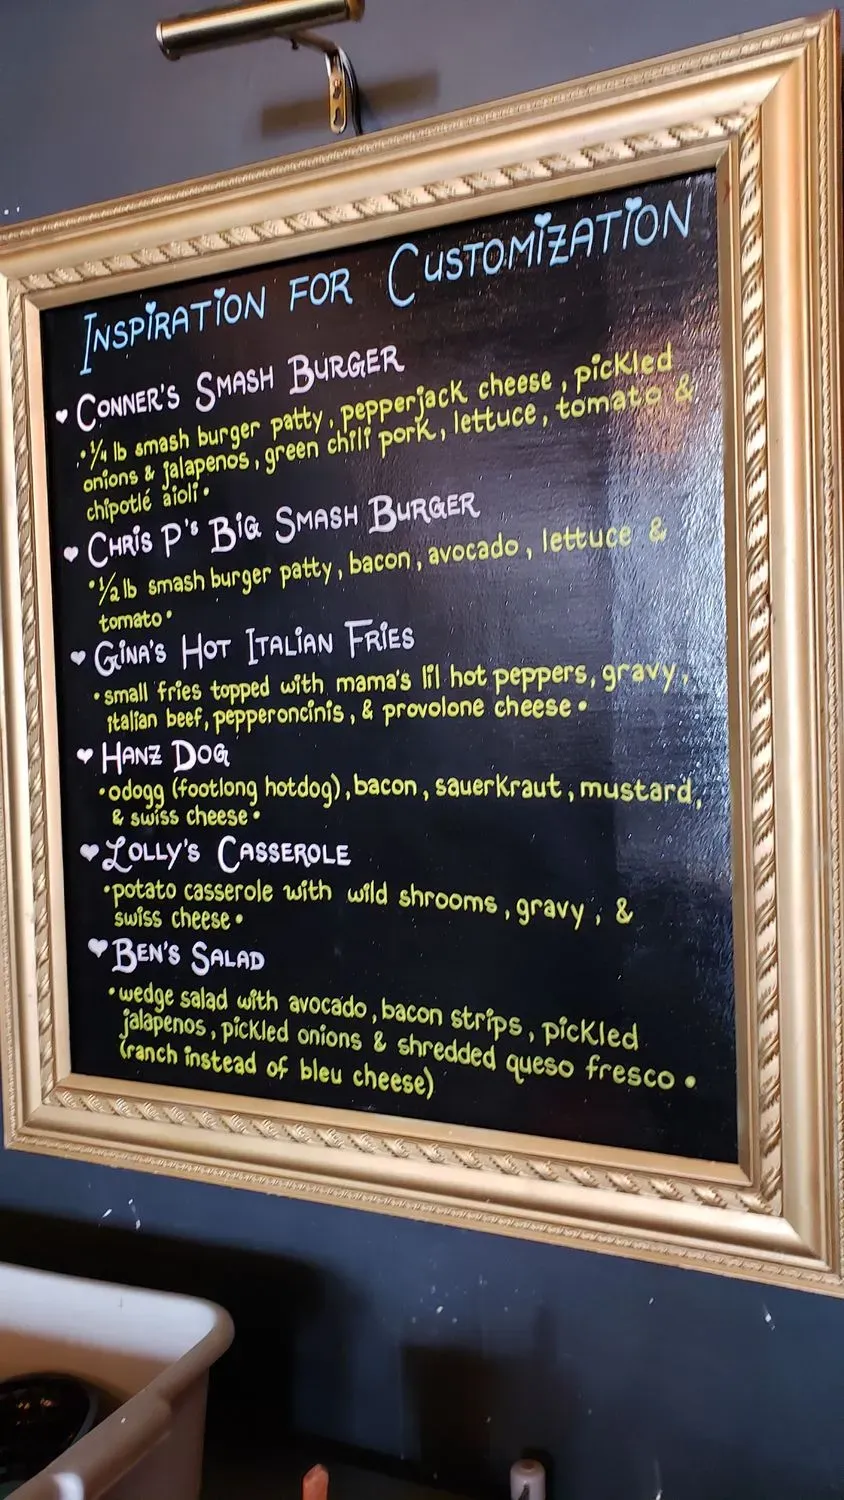 Inspiration for Customization
♥ Conner's Smash Burger
• 1/4 lb smash burger patty, pepperjack cheese, pickled
onions & jalapenos, green chili pork, lettuce, tomato &
chipotlé aioli •
♥ Chris P's Big Smash Burger
• 1/2 lb smash burger patty, bacon, avocado, lettuce &
tomato •
♥ Gina's Hot Italian Fries
• small fries topped with mama's lil hot peppers, gravy,
italian beef, pepperoncinis, & provolone cheese •
♥ Hanz Dog
• odogg (footlong hotdog), bacon, sauerkraut, mustard,
& swiss cheese •
♥ Lolly's Casserole
• potato casserole with wild shrooms, gravy, &
swiss cheese •
♥ Ben's Salad
• wedge salad with avocado, bacon strips, pickled
jalapenos, pickled onions & shredded queso fresco •
(ranch instead of bleu cheese)